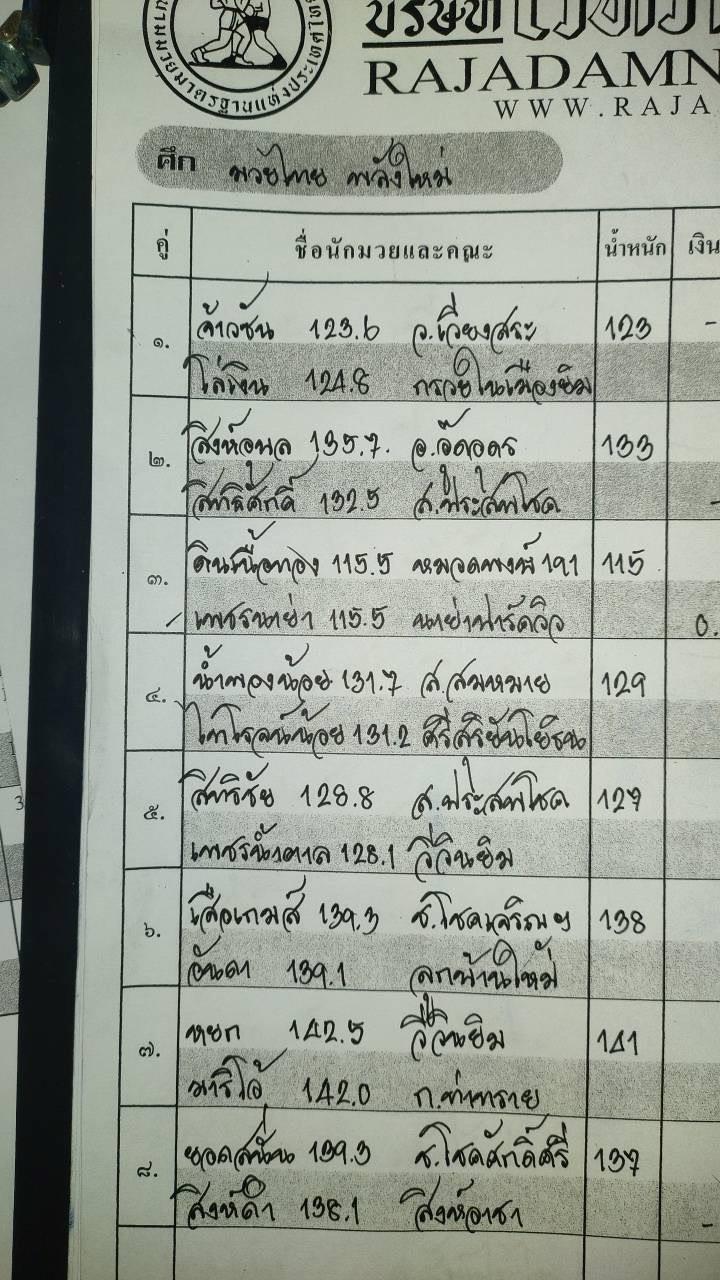 สนามมวยมาตรฐานแห่งประเทศไทย
บริษัท เวที
RAJADAMN
WWW.RAJA
ศึก มวยไทย พลังใหม่
คู่ ชื่อนักมวยและคณะ น้ำหนัก เงิน
๑. จ้าวซัน 123.6 ว.เวียงสระ 123 -
ไล่เงิน 124.8 กรวยในเมืองยิม
๒. สิงห์อุบล 135.7. อ.อู๊ดอุดร 133
สิทธิศักดิ์ 132.5 ส.ประสพโชค -
๓. ดินเนื้อทอง 115.5 หมวดพงษ์191 115
เพชรนาย่า 115.5 นาย่าฟาร์ควิว 0.
๔. น้ำพองน้อย 131.7 ส.สมหมาย 129
ไทโรจน์น้อย 131.2 ศิริสุริยันโยธิน
๕. สิทธิชัย 128.8 ส.ประสพโชค 127
เพชรน้ำตาล 128.1 วีวินยิม
๖. เสือเกมส์ 139.3 ช.โชคเจริญฯ 138
อันดา 139.1 ลูกบ้านใหม่
๗. หยก 142.5 วีวินยิม 141
มาริโอ้ 142.0 ก.ท่าทราย
๘. ยอดสนั่น 139.3 ช.โชคศักดิ์ศรี 137
สิงห์ดำ 138.1 สิงห์อาชา -
3